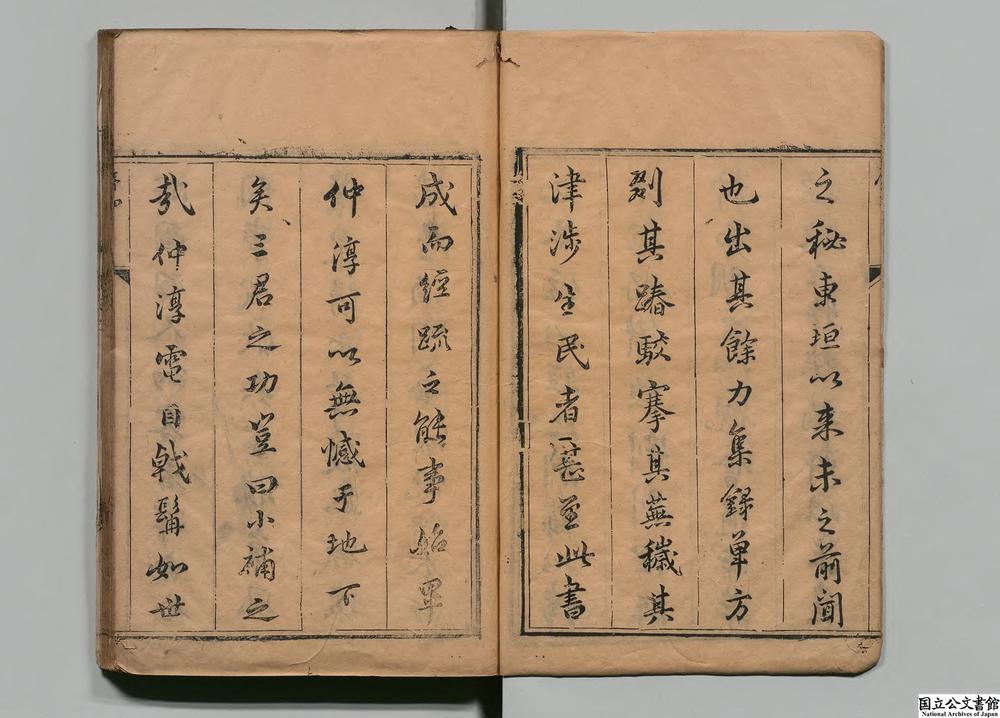 之秘東垣以来未之前聞
也出其餘力集録单方
剟其踳駁搴其蕪穢其
津涉生民者甚至此書
成而經疏之能事始畢
仲淳可以無憾于地下
矣三君之功豈曰小補之
哉仲淳電目戟髯如世
国立公文書館
National Archives of Japan